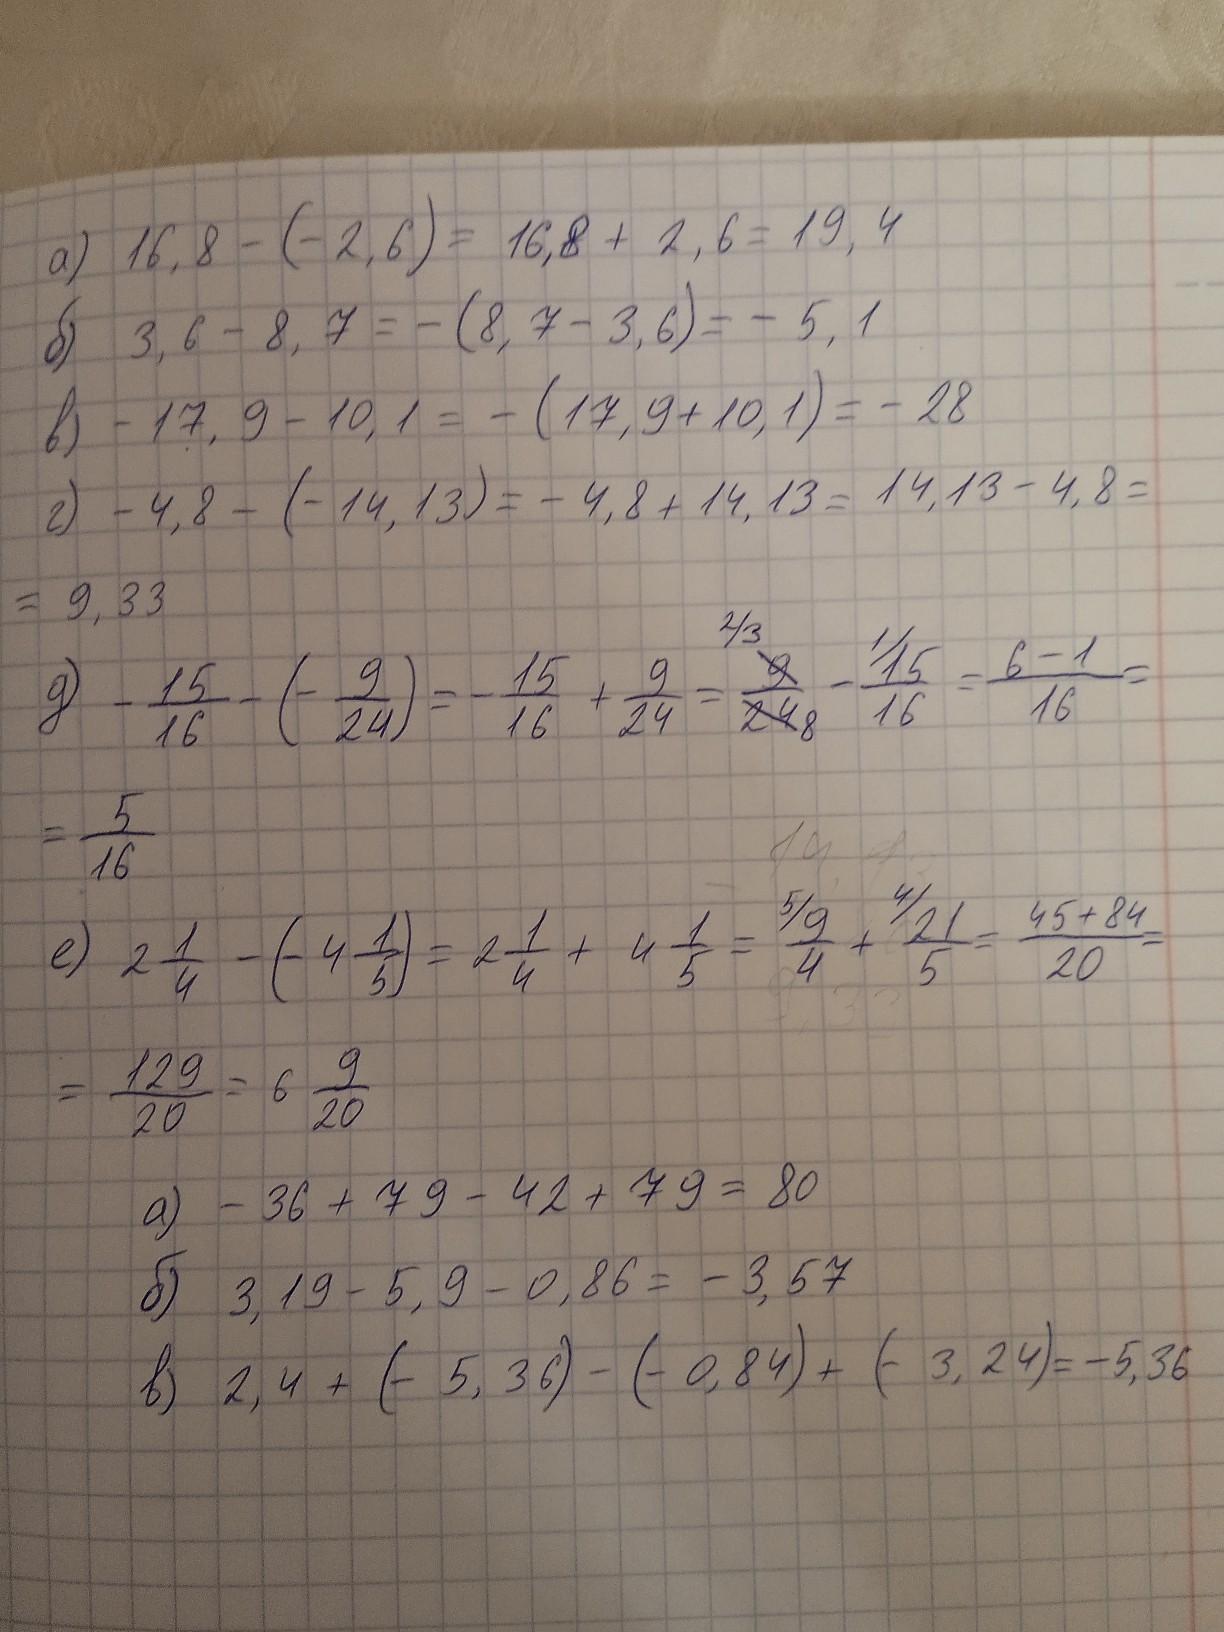 а) 16,8 - (-2,6) = 16,8 + 2,6 = 19,4
б) 3,6 - 8,7 = -(8,7 - 3,6) = -5,1
в) -17,9 - 10,1 = -(17,9 + 10,1) = -28
г) -4,8 - (-14,13) = -4,8 + 14,13 = 14,13 - 4,8 =
= 9,33
д) -15/16 - (-9/24) = -15/16 + 9/24 = 2/3 9/24 8 - 1/15/16 = 6-1/16 =
= 5/16
е) 2 1/4 - (-4 1/5) = 2 1/4 + 4 1/5 = 5/ 9/4 + 4/ 21/5 = 45+84/20 =
= 129/20 = 6 9/20
а) -36 + 79 - 42 + 79 = 80
б) 3,19 - 5,9 - 0,86 = -3,57
в) 2,4 + (-5,36) - (-0,84) + (-3,24) = -5,36